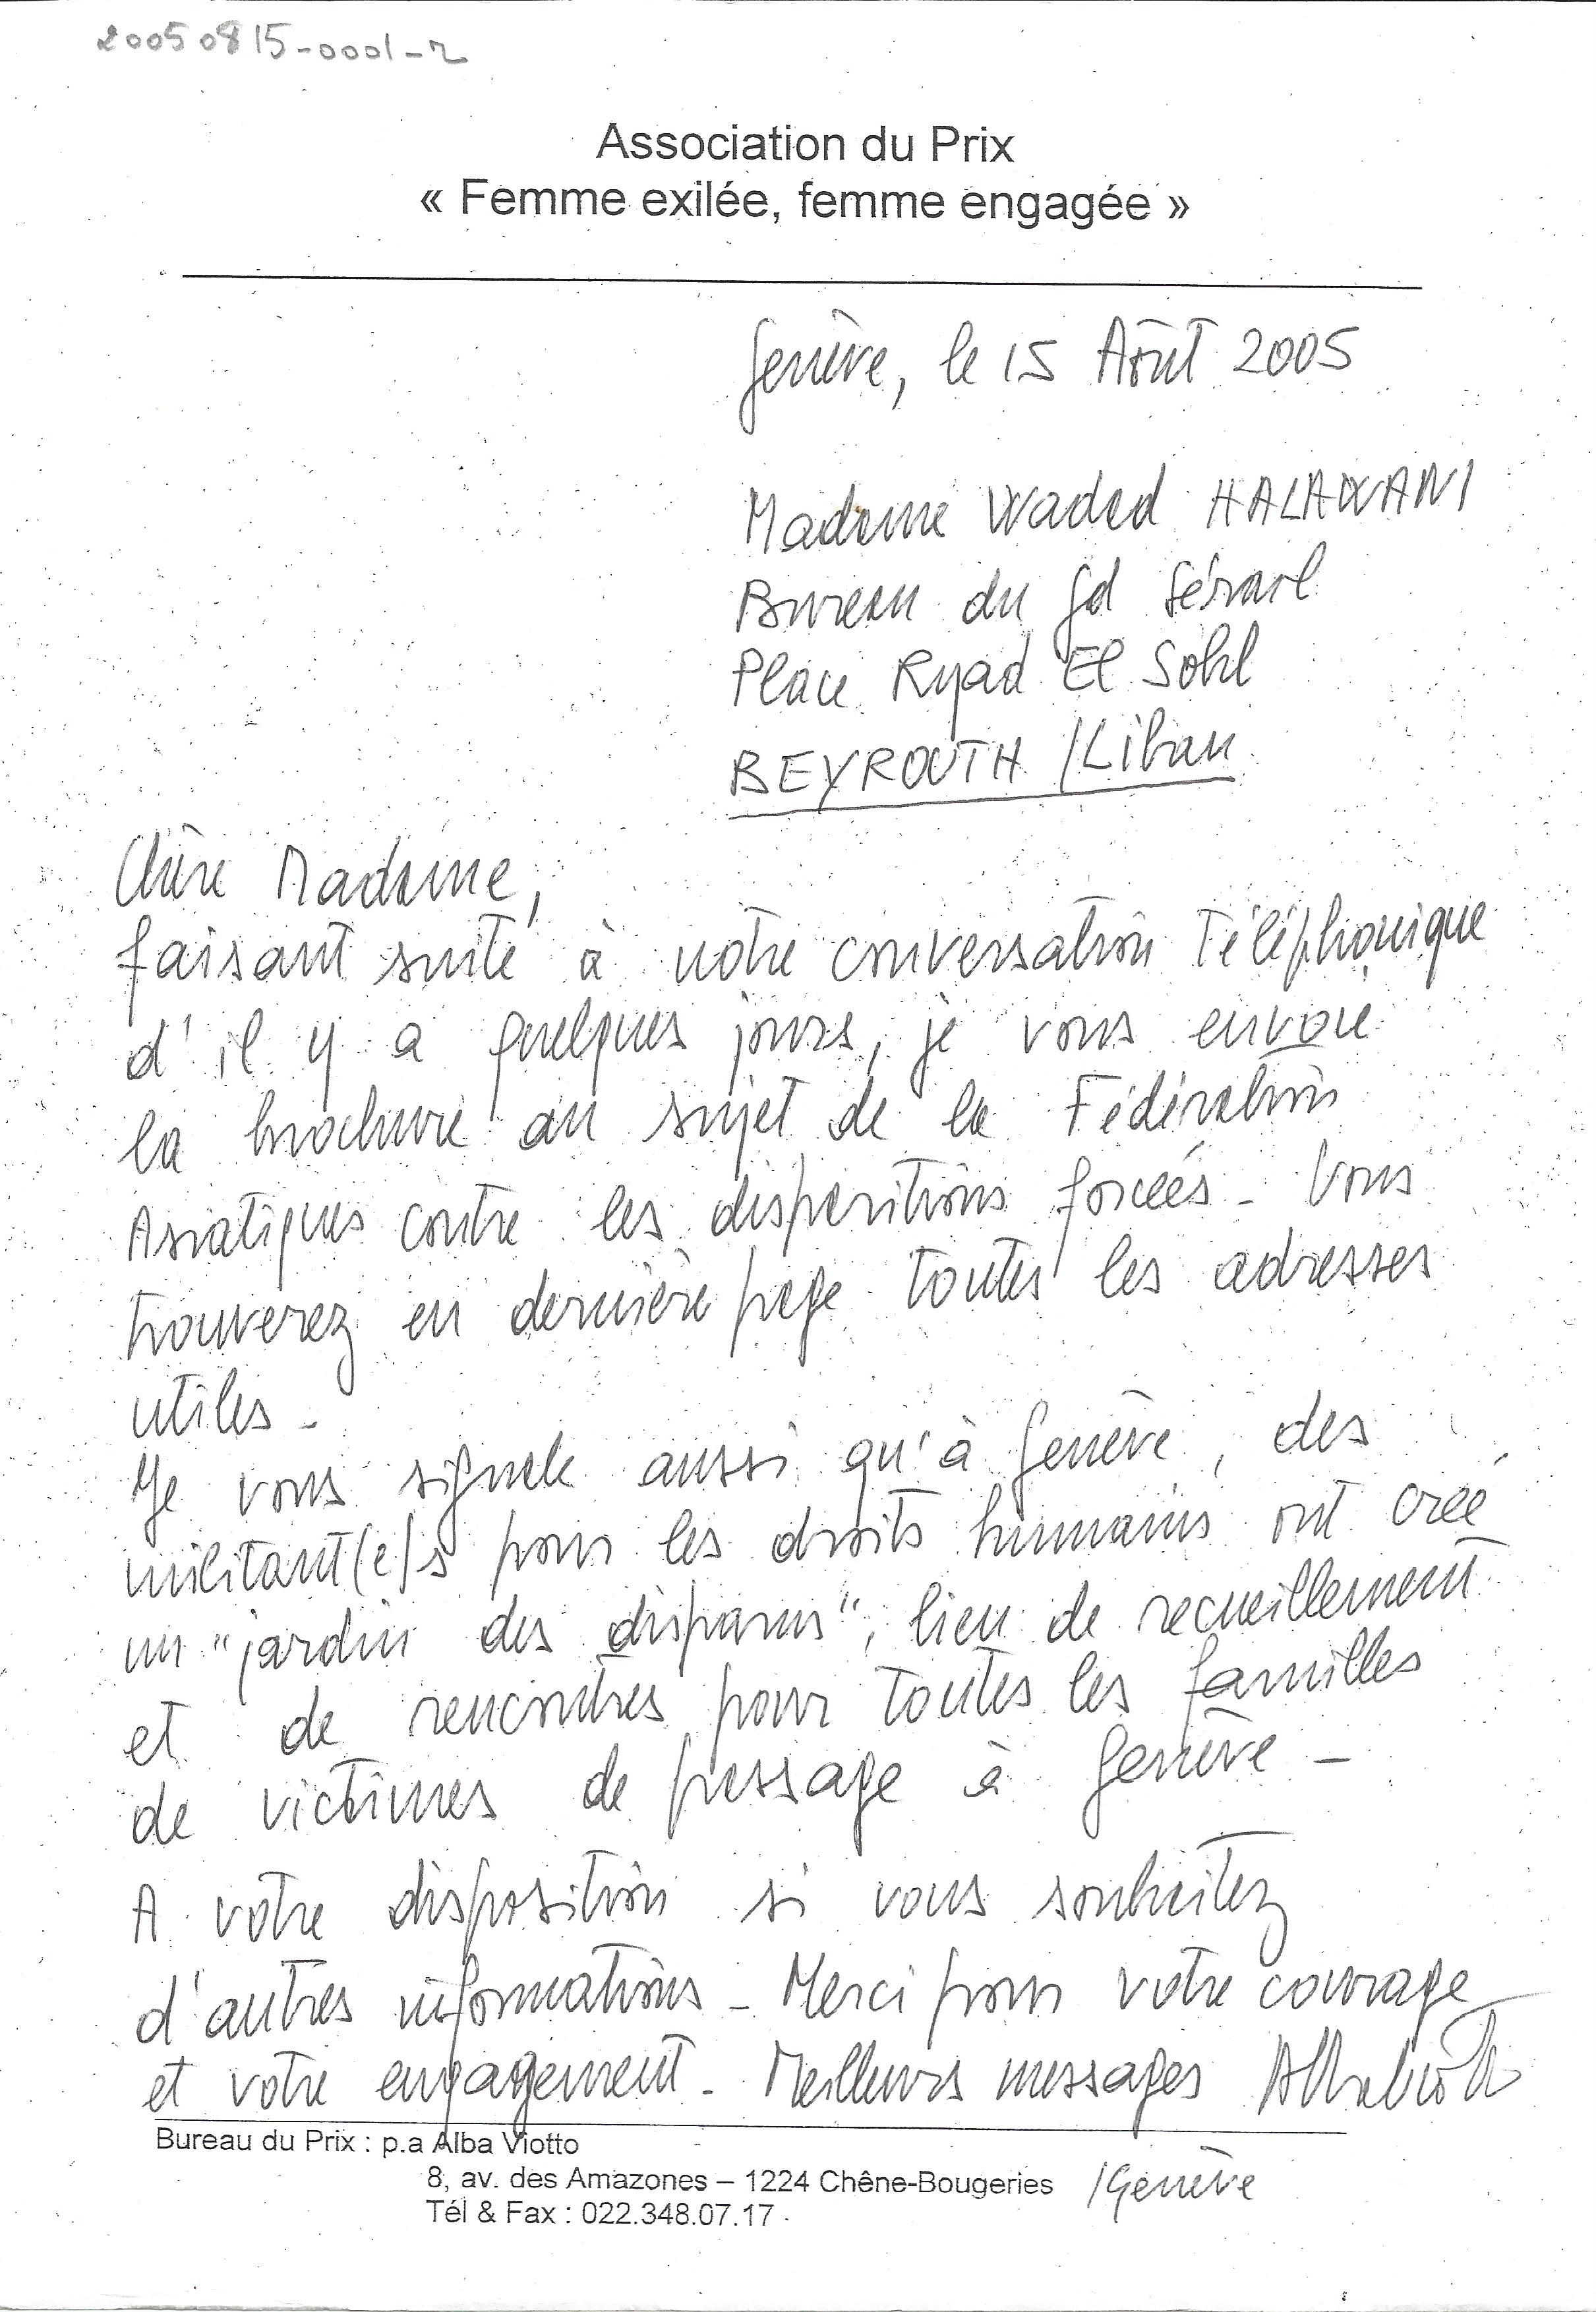 20050815-0001-2
Association du Prix
« Femme exilée, femme engagée »
Genève, le 15 Août 2005
Madame Wadad HALAWANI
Bureau du Gd Sérail
Place Ryad El Sohl
BEYROUTH /Liban
Chère Madame,
faisant suite à notre conversation téléphonique
d'il y a quelques jours, je vous envoie
la brochure au sujet de la Fédération
Asiatiques contre les disparitions forcées - Vous
trouverez en dernière page toutes les adresses
utiles -
Je vous signale aussi qu'à Genève, des
militant(e)s pour les droits humains ont créé
un "jardin des disparus", lieu de recueillement
et de rencontres pour toutes les familles
de victimes de passage à Genève -
A votre disposition si vous souhaitez
d'autres informations - Merci pour votre courage
et votre engagement - Meilleurs messages
Bureau du Prix : p.a Alba Viotto
8, av. des Amazones – 1224 Chêne-Bougeries /Genève
Tél & Fax : 022.348.07.17